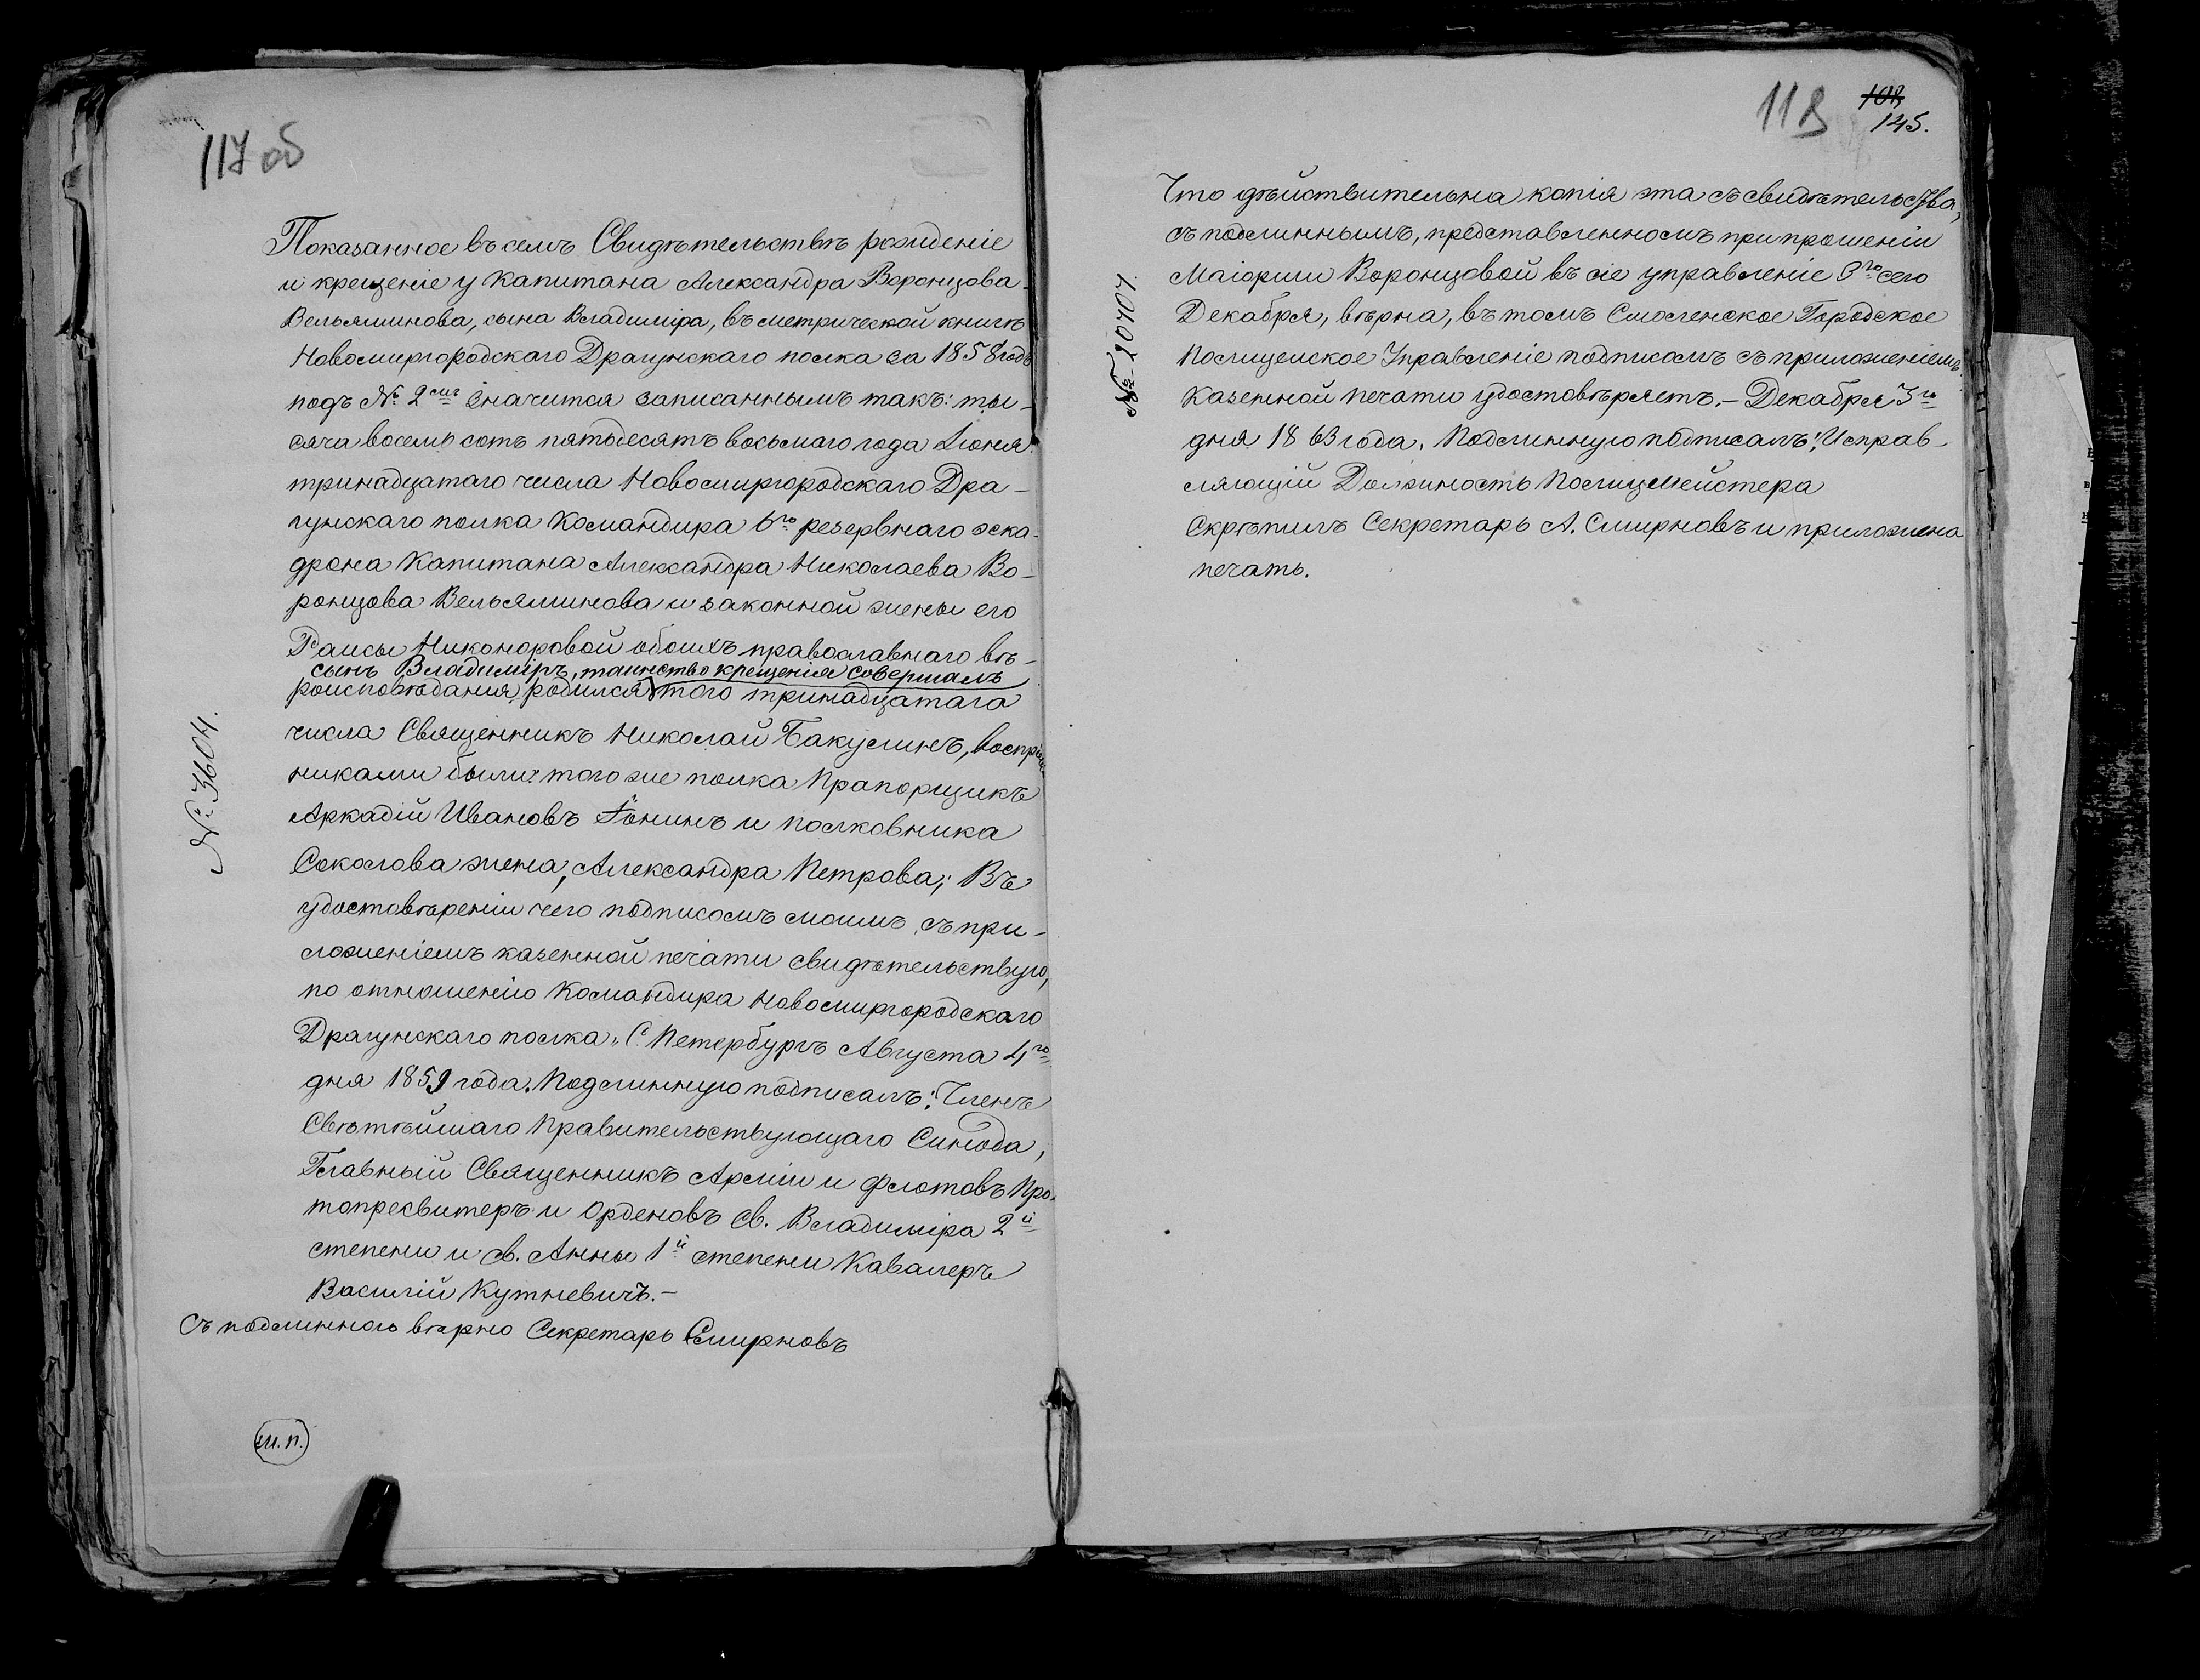 117 об
Показанное въ семъ Свидѣтельствѣ рожденіе
и крещеніе у Капитана Александра Воронцова-
Вельяминова, сына Владиміра, въ метрической книгѣ
Новомиргородскаго Драгунскаго полка за 1858 годъ
подъ № 2мъ значится записаннымъ такъ: ты-
сяча восемь сотъ пятьдесятъ восьмаго года Іюня
тринадцатаго числа Новомиргородскаго Дра-
гунскаго полка Командира 6го резервнаго эска-
дрона Капитана Александра Николаева Во-
ронцова Вельяминова и законной жены его
Раисы Никоноровой обоихъ православнаго вѣ-
сынъ Владиміръ, таинство крещенія совершалъ
роисповѣданія, родился того тринадцатаго
числа Священникъ Николай Бакулинъ, воспріем-
никами были: того же полка Прапорщикъ
Аркадій Ивановъ и Полковника
Соколова жена, Александра Петрова; Въ
удостовѣреніи чего подписомъ моимъ съ при-
ложеніемъ казенной печати свидѣтельствую,
по отношенію Командира Новомиргородскаго
Драгунскаго полка. С. Петербургъ Августа 4го
дня 1859 года. Подлинную подписалъ: Членъ
Святѣйшаго Правительствующаго Синода,
Главный Священникъ Арміи и флотовъ Про-
топресвитеръ и Орденовъ Св. Владиміра 2й
степени и св. Анны 1й степени Кавалеръ
Василій Кутневичъ.-
Съ подлиннымъ вѣрно Секретарь Смирновъ
№ 3604.
м.п.
118
108
145.
Что дѣйствительна копія эта съ свидѣтельства,
съ подлиннымъ, представленномъ при прошеніи
Маіорши Воронцовой въ сіе управленіе 3го сего
Декабря, вѣрна, въ томъ Смоленское Городское
Полицейское Управленіе подписомъ съ приложеніемъ
Казенной печати удостовѣряетъ.- Декабря 3го
дня 1863 года. Подлинную подписалъ: Исправ-
ляющій Должность Полицмейстера
Скрѣпилъ Секретарь А. Смирновъ и приложена
печать.
№ 20401.